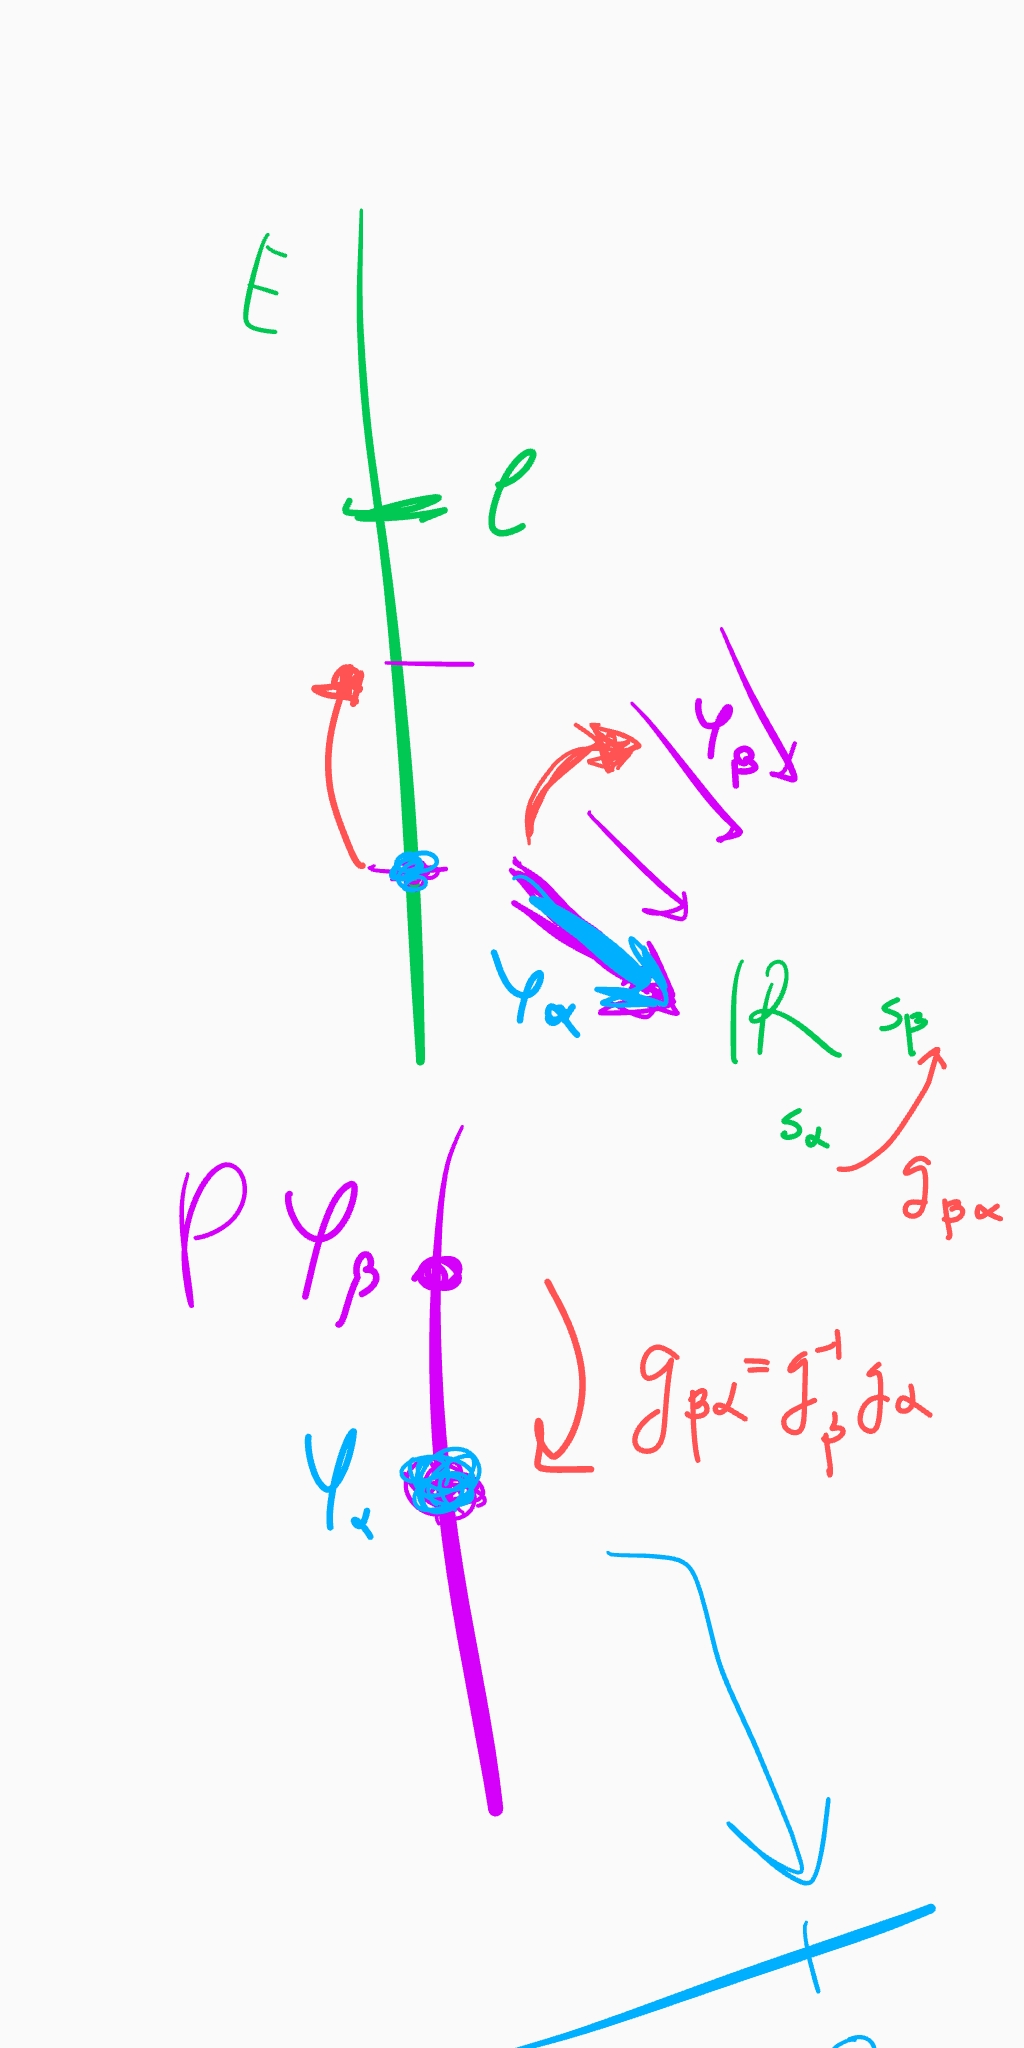 E
e
φ_β
φ_α
ℝ
s_β
s_α
g_βα
P φ_β
g_βα = g_β⁻¹ g_α
φ_α